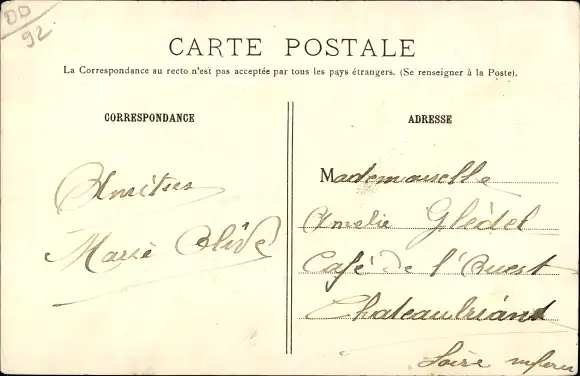 DD
92
CARTE POSTALE
La Correspondance au recto n'est pas acceptée par tous les pays étrangers. (Se renseigner à la Poste).
CORRESPONDANCE
Amitiés
Marie Olive
ADRESSE
Mademoiselle
Amelie Glédel
Café de l'Ouest
Chateaubriand
Loire infere